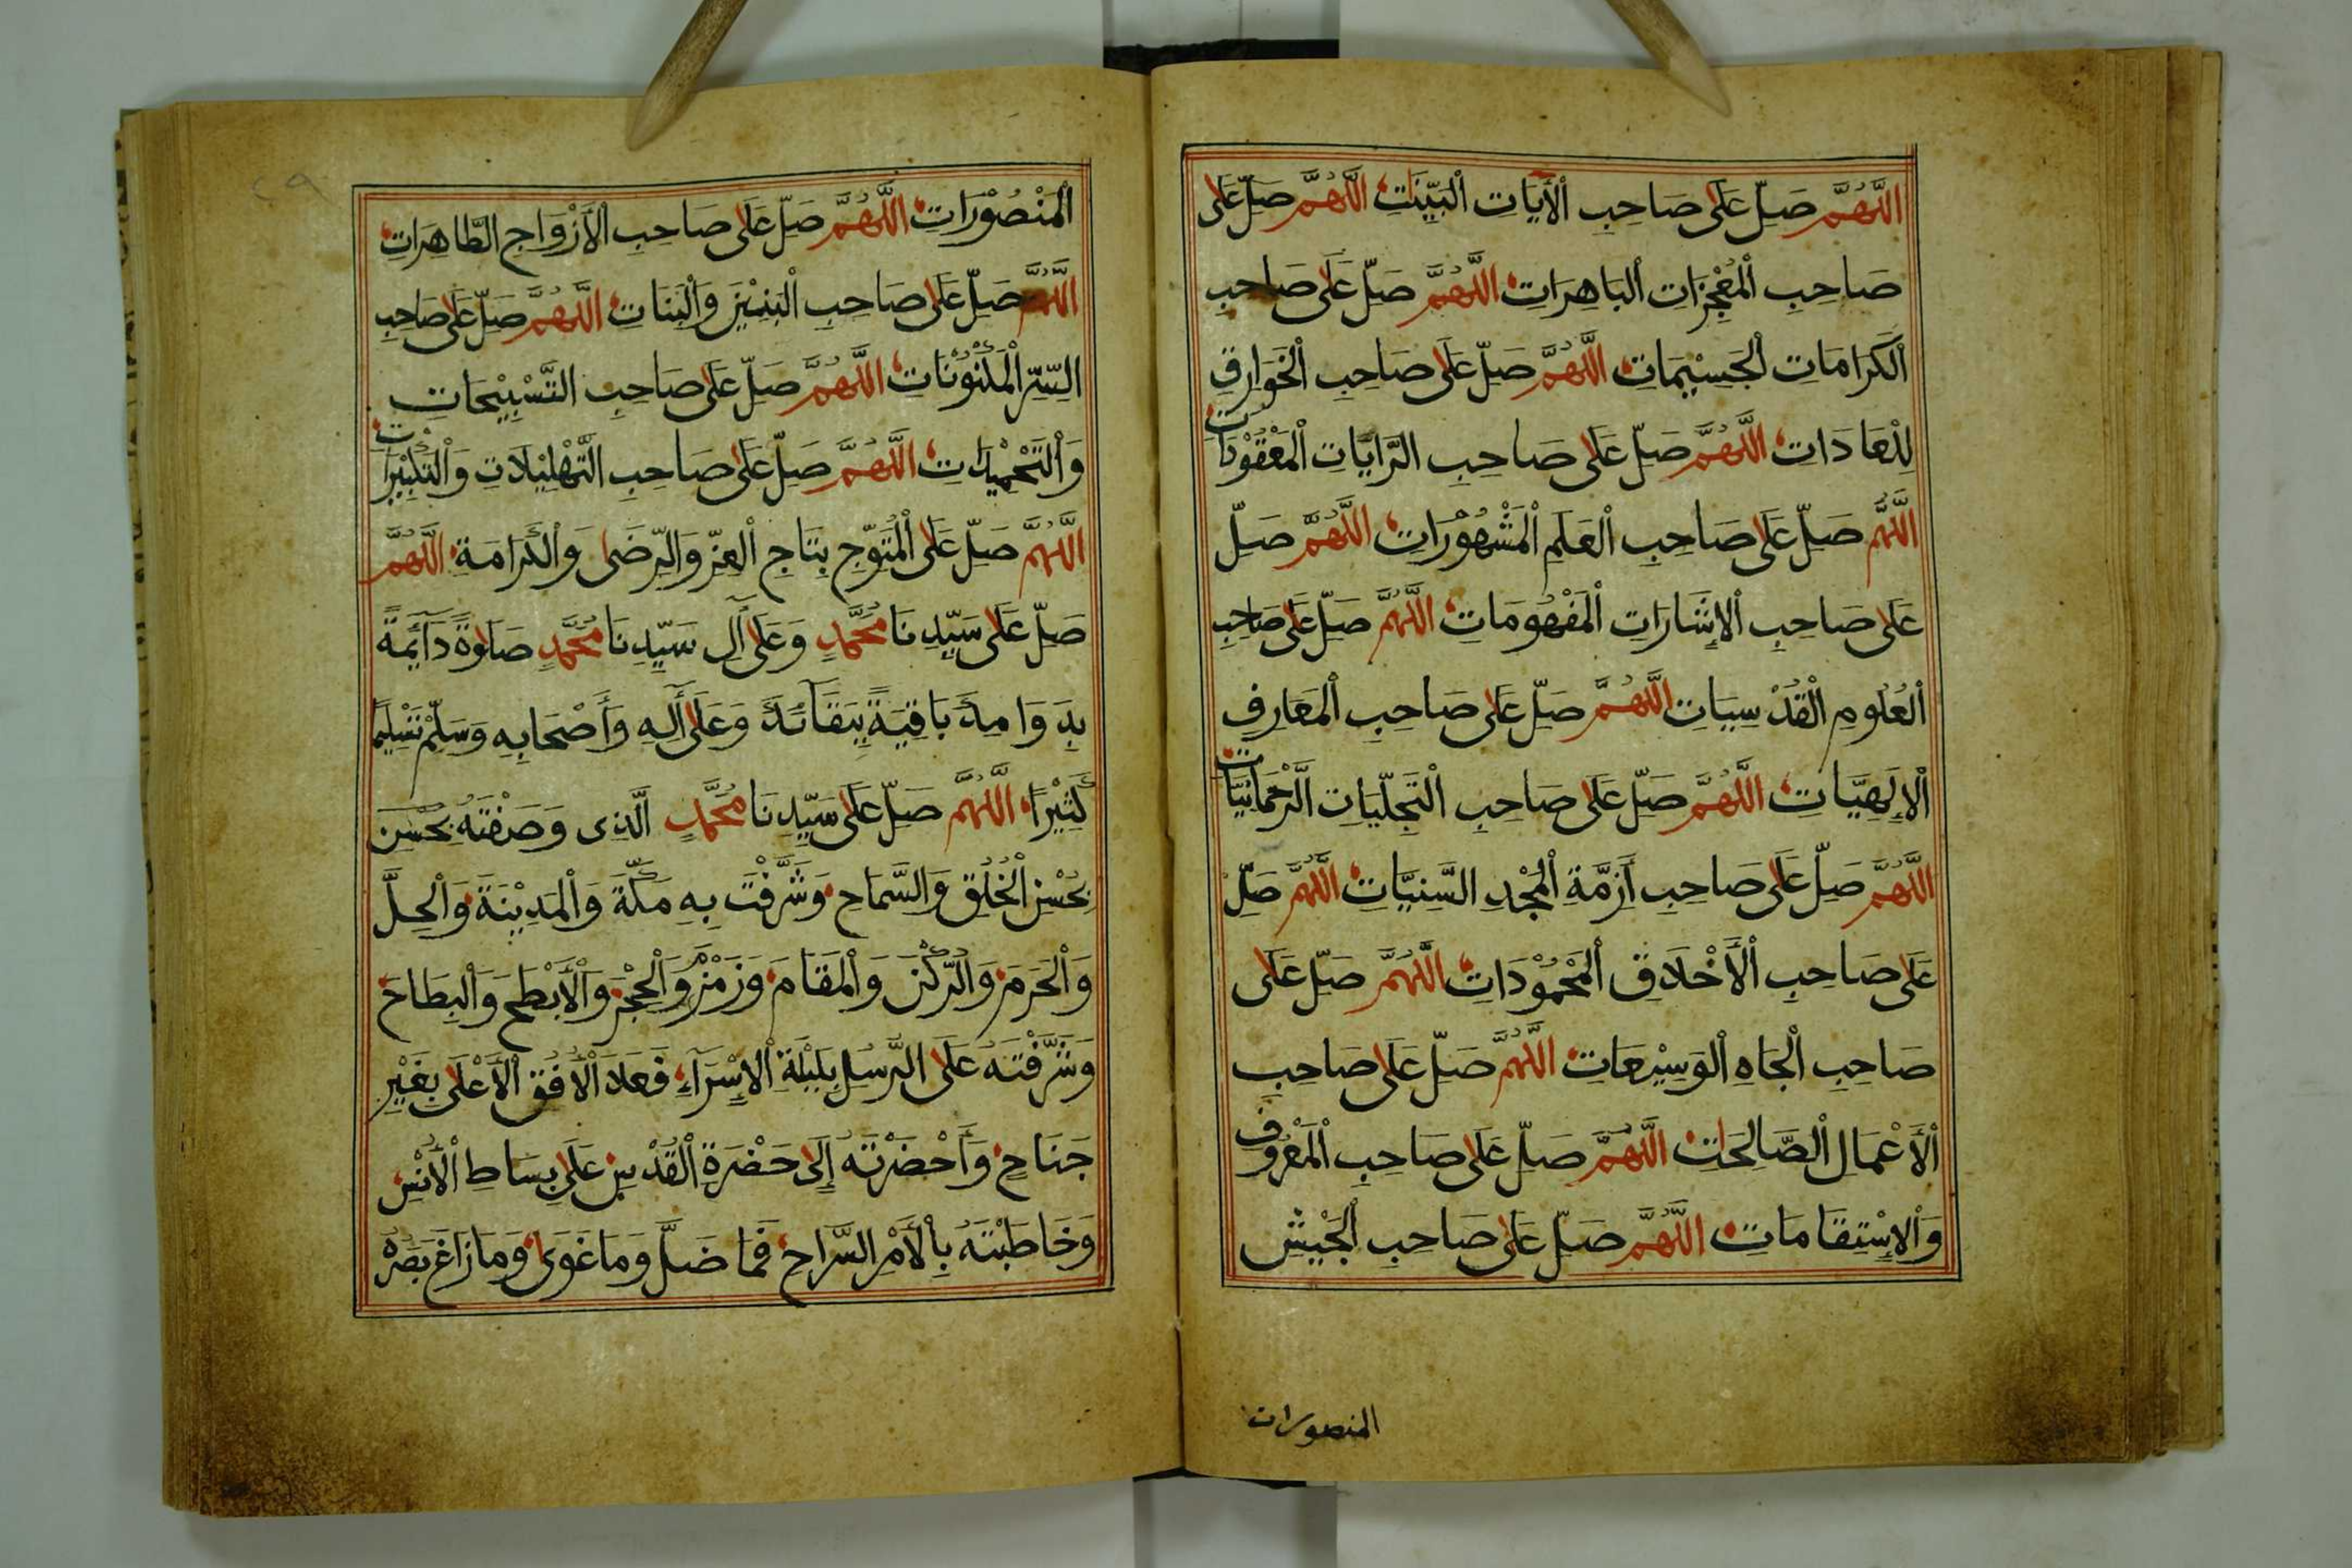 اللَّهُمَّ صَلِّ عَلَى صَاحِبِ الْأٓيَاتِ الْبَيِّنَاتِ اللَّهُمَّ صَلِّ عَلَى
صَاحِبِ الْمُعْجِزَاتِ الْبَاهِرَاتِ اللَّهُمَّ صَلِّ عَلَى صَاحِبِ
الْكَرَامَاتِ الْجَسِيْمَاتِ اللَّهُمَّ صَلِّ عَلَى صَاحِبِ الْخَوَارِقِ
لِلْعَادَاتِ اللَّهُمَّ صَلِّ عَلَى صَاحِبِ الرَّايَاتِ الْمَعْقُوْدَاتِ
اللَّهُمَّ صَلِّ عَلَى صَاحِبِ الْعَلَمِ الْمَشْهُوْرَاتِ اللَّهُمَّ صَلِّ
عَلَى صَاحِبِ الْاِشَارَاتِ الْمَفْهُومَاتِ اللَّهُمَّ صَلِّ عَلَى صَاحِبِ
الْعُلُومِ الْقُدْسِيَاتِ اللَّهُمَّ صَلِّ عَلَى صَاحِبِ الْمَعَارِفِ
الْاِلَهِيَّاتِ اللَّهُمَّ صَلِّ عَلَى صَاحِبِ التَّجَلِّيَاتِ الرَّحْمَانِيَّاتِ
اللَّهُمَّ صَلِّ عَلَى صَاحِبِ أَزِمَّةِ الْمَجْدِ السَّنِيَّاتِ اللَّهُمَّ صَلِّ
عَلَى صَاحِبِ الْأَخْلَاقِ الْمَحْمُوْدَاتِ اللَّهُمَّ صَلِّ عَلَى
صَاحِبِ الْجَاهِ الْوَسِيْعَاتِ اللَّهُمَّ صَلِّ عَلَى صَاحِبِ
الْأَعْمَالِ الصَّالِحَاتِ اللَّهُمَّ صَلِّ عَلَى صَاحِبِ الْمَعْرُوفِ
وَالْاِسْتِقَامَاتِ اللَّهُمَّ صَلِّ عَلَى صَاحِبِ الْجَيْشِ
المنصورات
الْمَنْصُوْرَاتِ اللَّهُمَّ صَلِّ عَلَى صَاحِبِ الْأَزْوَاجِ الطَّاهِرَاتِ
اللَّهُمَّ صَلِّ عَلَى صَاحِبِ الْبَنِيْنَ وَالْبَنَاتِ اللَّهُمَّ صَلِّ عَلَى صَاحِبِ
السِّرِّ الْمَكْنُوْنَاتِ اللَّهُمَّ صَلِّ عَلَى صَاحِبِ التَّسْبِيْحَاتِ
وَالتَّحْمِيْدَاتِ اللَّهُمَّ صَلِّ عَلَى صَاحِبِ التَّهْلِيْلَاتِ وَالتَّكْبِيْرَاتِ
اللَّهُمَّ صَلِّ عَلَى الْمُتَوَّجِ بِتَاجِ الْعِزِّ وَالرِّضَى وَالْكَرَامَةِ اللَّهُمَّ
صَلِّ عَلَى سَيِّدِنَا مُحَمَّدٍ وَعَلَى آلِ سَيِّدِنَا مُحَمَّدٍ صَلَوٰةً دَآئِمَةً
بِدَوَامِكَ بَاقِيَةً بِبَقَآئِكَ وَعَلَى أٓلِهِ وَأَصْحَابِهِ وَسَلِّمْ تَسْلِيْمًا
كَثِيْرًا اللَّهُمَّ صَلِّ عَلَى سَيِّدِنَا مُحَمَّدٍ الَّذِى وَصَفْتَهُ بِحُسْنِ
بِحُسْنِ الْخُلُقِ وَالسَّمَاحِ وَشَرَّفْتَ بِهِ مَكَّةَ وَالْمَدِيْنَةَ وَالْحِلَّ
وَالْحَرَمَ وَالرُّكْنَ وَالْمَقَامَ وَزَمْزَمَ وَالْحِجْرَ وَالْأَبْطَحَ وَالْبِطَاحَ
وَشَرَّفْتَهُ عَلَى الرُّسُلِ بِلَيْلَةِ الْاِسْرَآءِ فَعَلَا الْأُفُقَ الْأَعْلَى بِغَيْرِ
جَنَاحٍ وَأَحْضَرْتَهُ إِلَى حَضْرَةِ الْقُدْسِ عَلَى بِسَاطِ الْأُنْسِ
وَخَاطَبْتَهُ بِالْأَمْرِ السَّرَاحِ فَمَا ضَلَّ وَمَا غَوَى وَمَا زَاغَ بَصَرُهُ